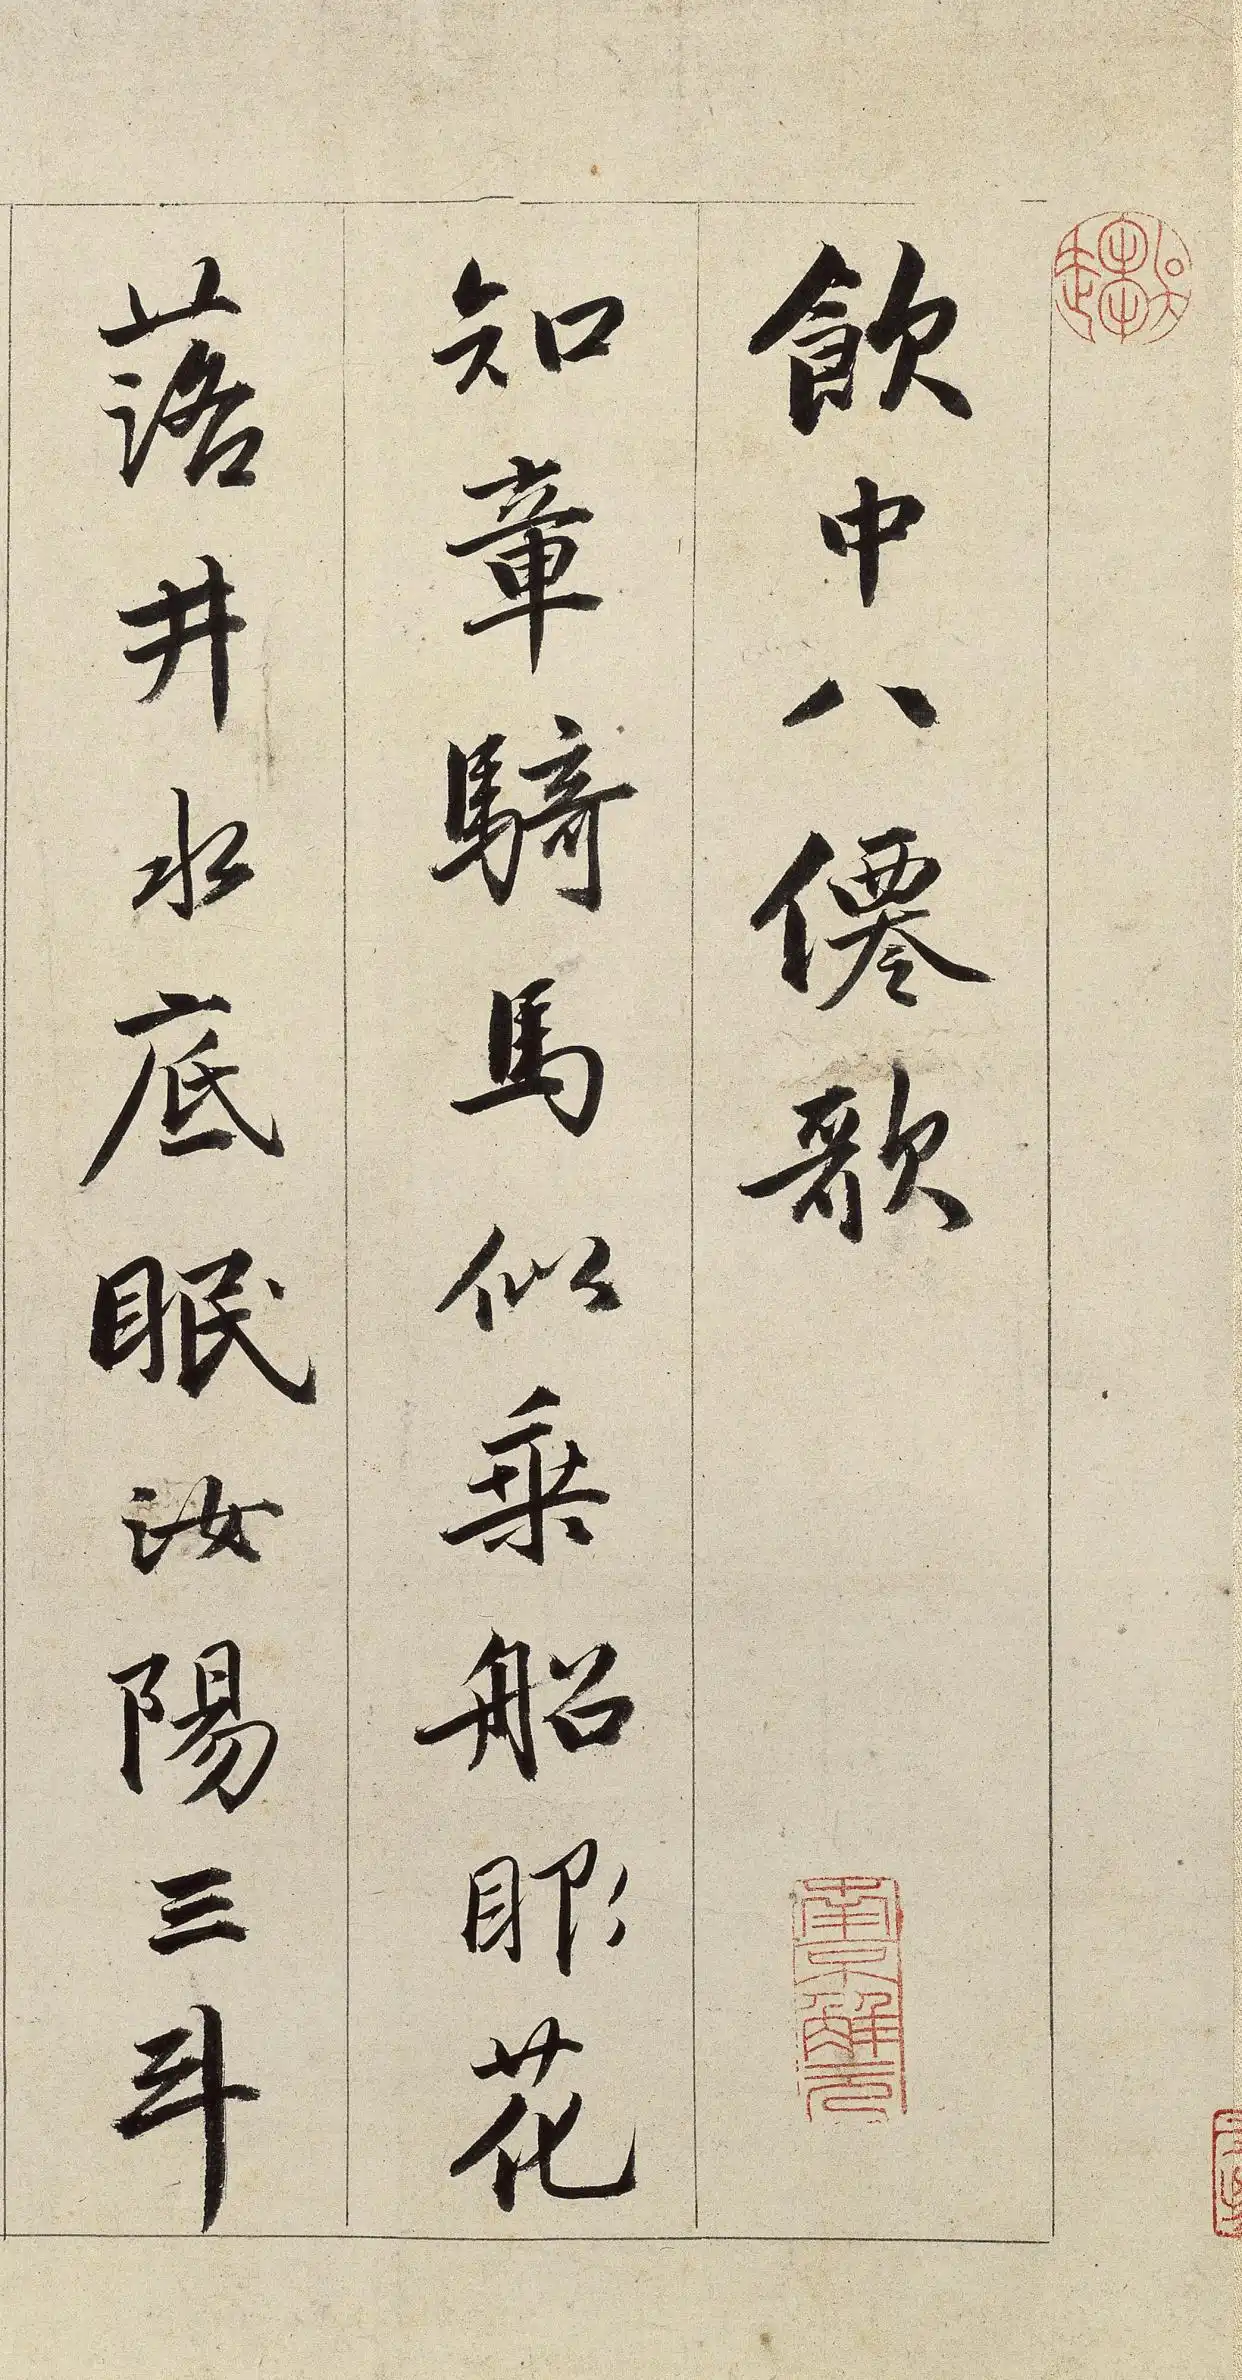 飲中八僊歌
知章騎馬似乗船眼花
落井水底眠汝陽三斗